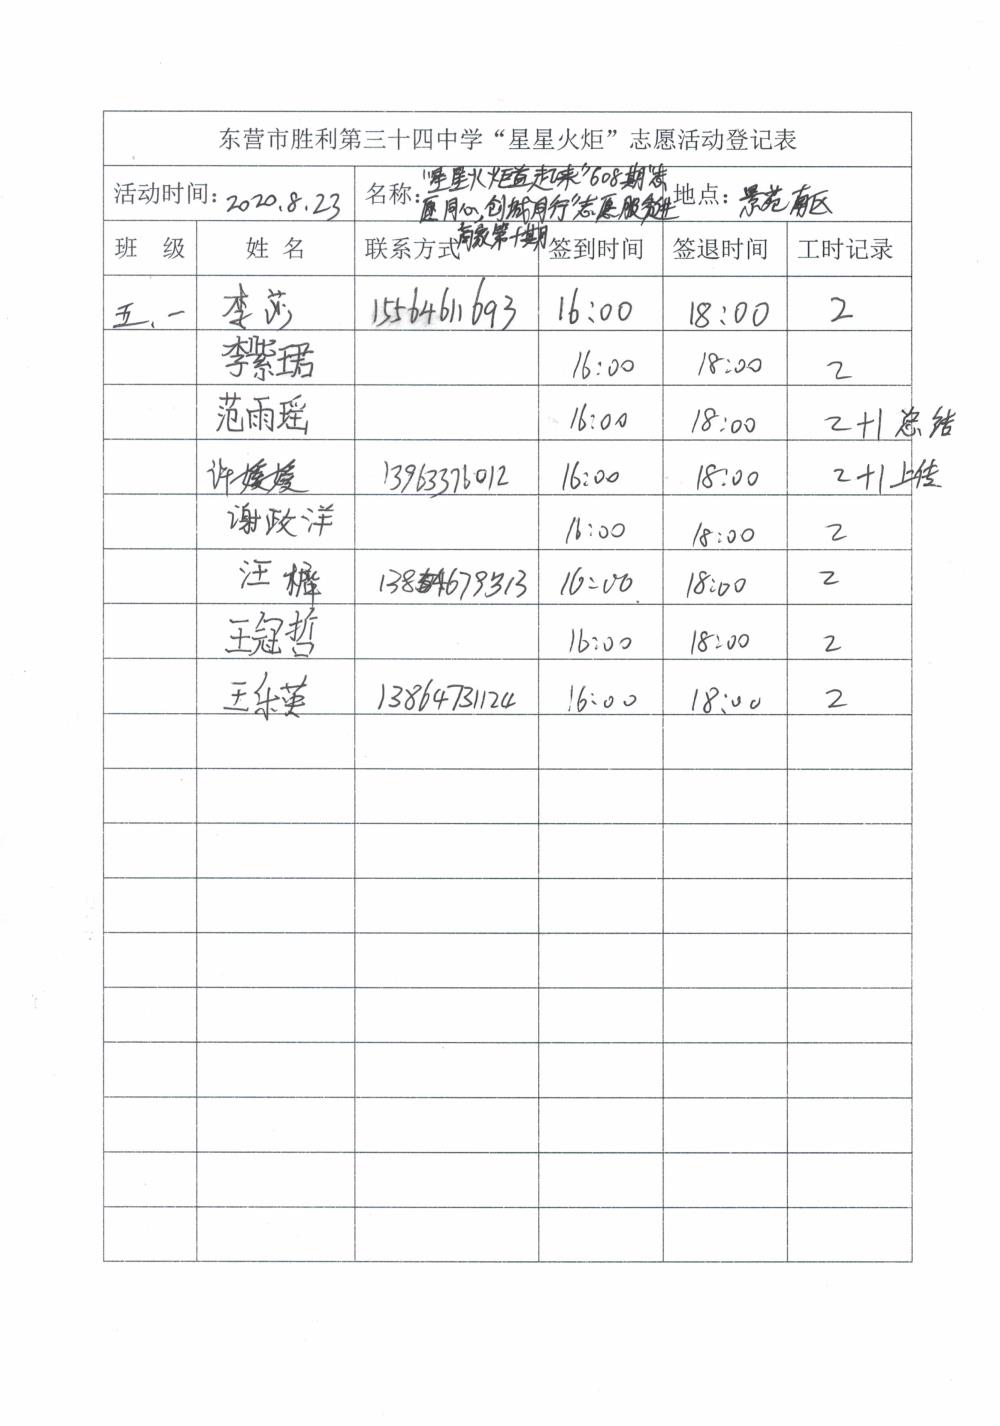 东营市胜利第三十四中学“星星火炬”志愿活动登记表
活动时间：2020.8.23 名称：“星星火炬直起来”608期“志愿同心，创城同行”志愿服务进商家第十期 地点：景苑南区
班 级 姓 名 联系方式 签到时间 签退时间 工时记录
五.一 李莎 15564611693 16:00 18:00 2
李紫珺 16:00 18:00 2
范雨瑶 16:00 18:00 2+1 总结
许媛媛 13963376012 16:00 18:00 2+1 上传
谢政洋 16:00 18:00 2
汪 16:00 18:00 2
王冠哲 16:00 18:00 2
王乐英 13864731124 16:00 18:00 2